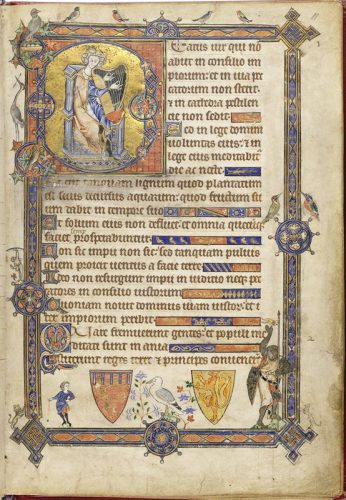 Beatus uir qui nō
abiit in consilio im
piorum: et in uia pec
catorum non stetit:
et in cathedra pestilen
cie non sedit
Sed in lege domini
uoluntas eius: et in
lege eius meditabit̄
die ac nocte
Et erit tanquam lignum quod plantatum
est secus decursus aquarum: quod fructum su
um dabit in tempore suo
Et folium eius non defluet: et omnia
faciet prosperabuntur
Non sic impii non sic: sed tanquam puluis
quem proicit uentus a facie terre
Ideo non resurgunt impii in iudicio neqȝ pec
catores in consilio iustorum
Quoniam nouit dominus uiam iustorum: et i
ter impiorum peribit
Quare fremuerunt gentes: et populi me
ditati sunt inania
Astiterunt reges terre et principes conuener